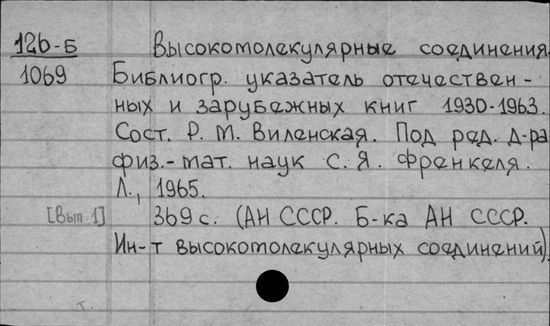 12б-Б Высокомолекулярные соединения.
1069 Библиогр. указатель отечествен-
ных и зарубежных книг 1930-1963.
Сост. Р. М. Виленская. Под ред. д-ра
физ.-мат. наук С. Я. Френкеля.
Л., 1965.
[Вып. 1] 369 с. (АН СССР. Б-ка АН СССР.
Ин-т высокомолекулярных соединений).
Т.